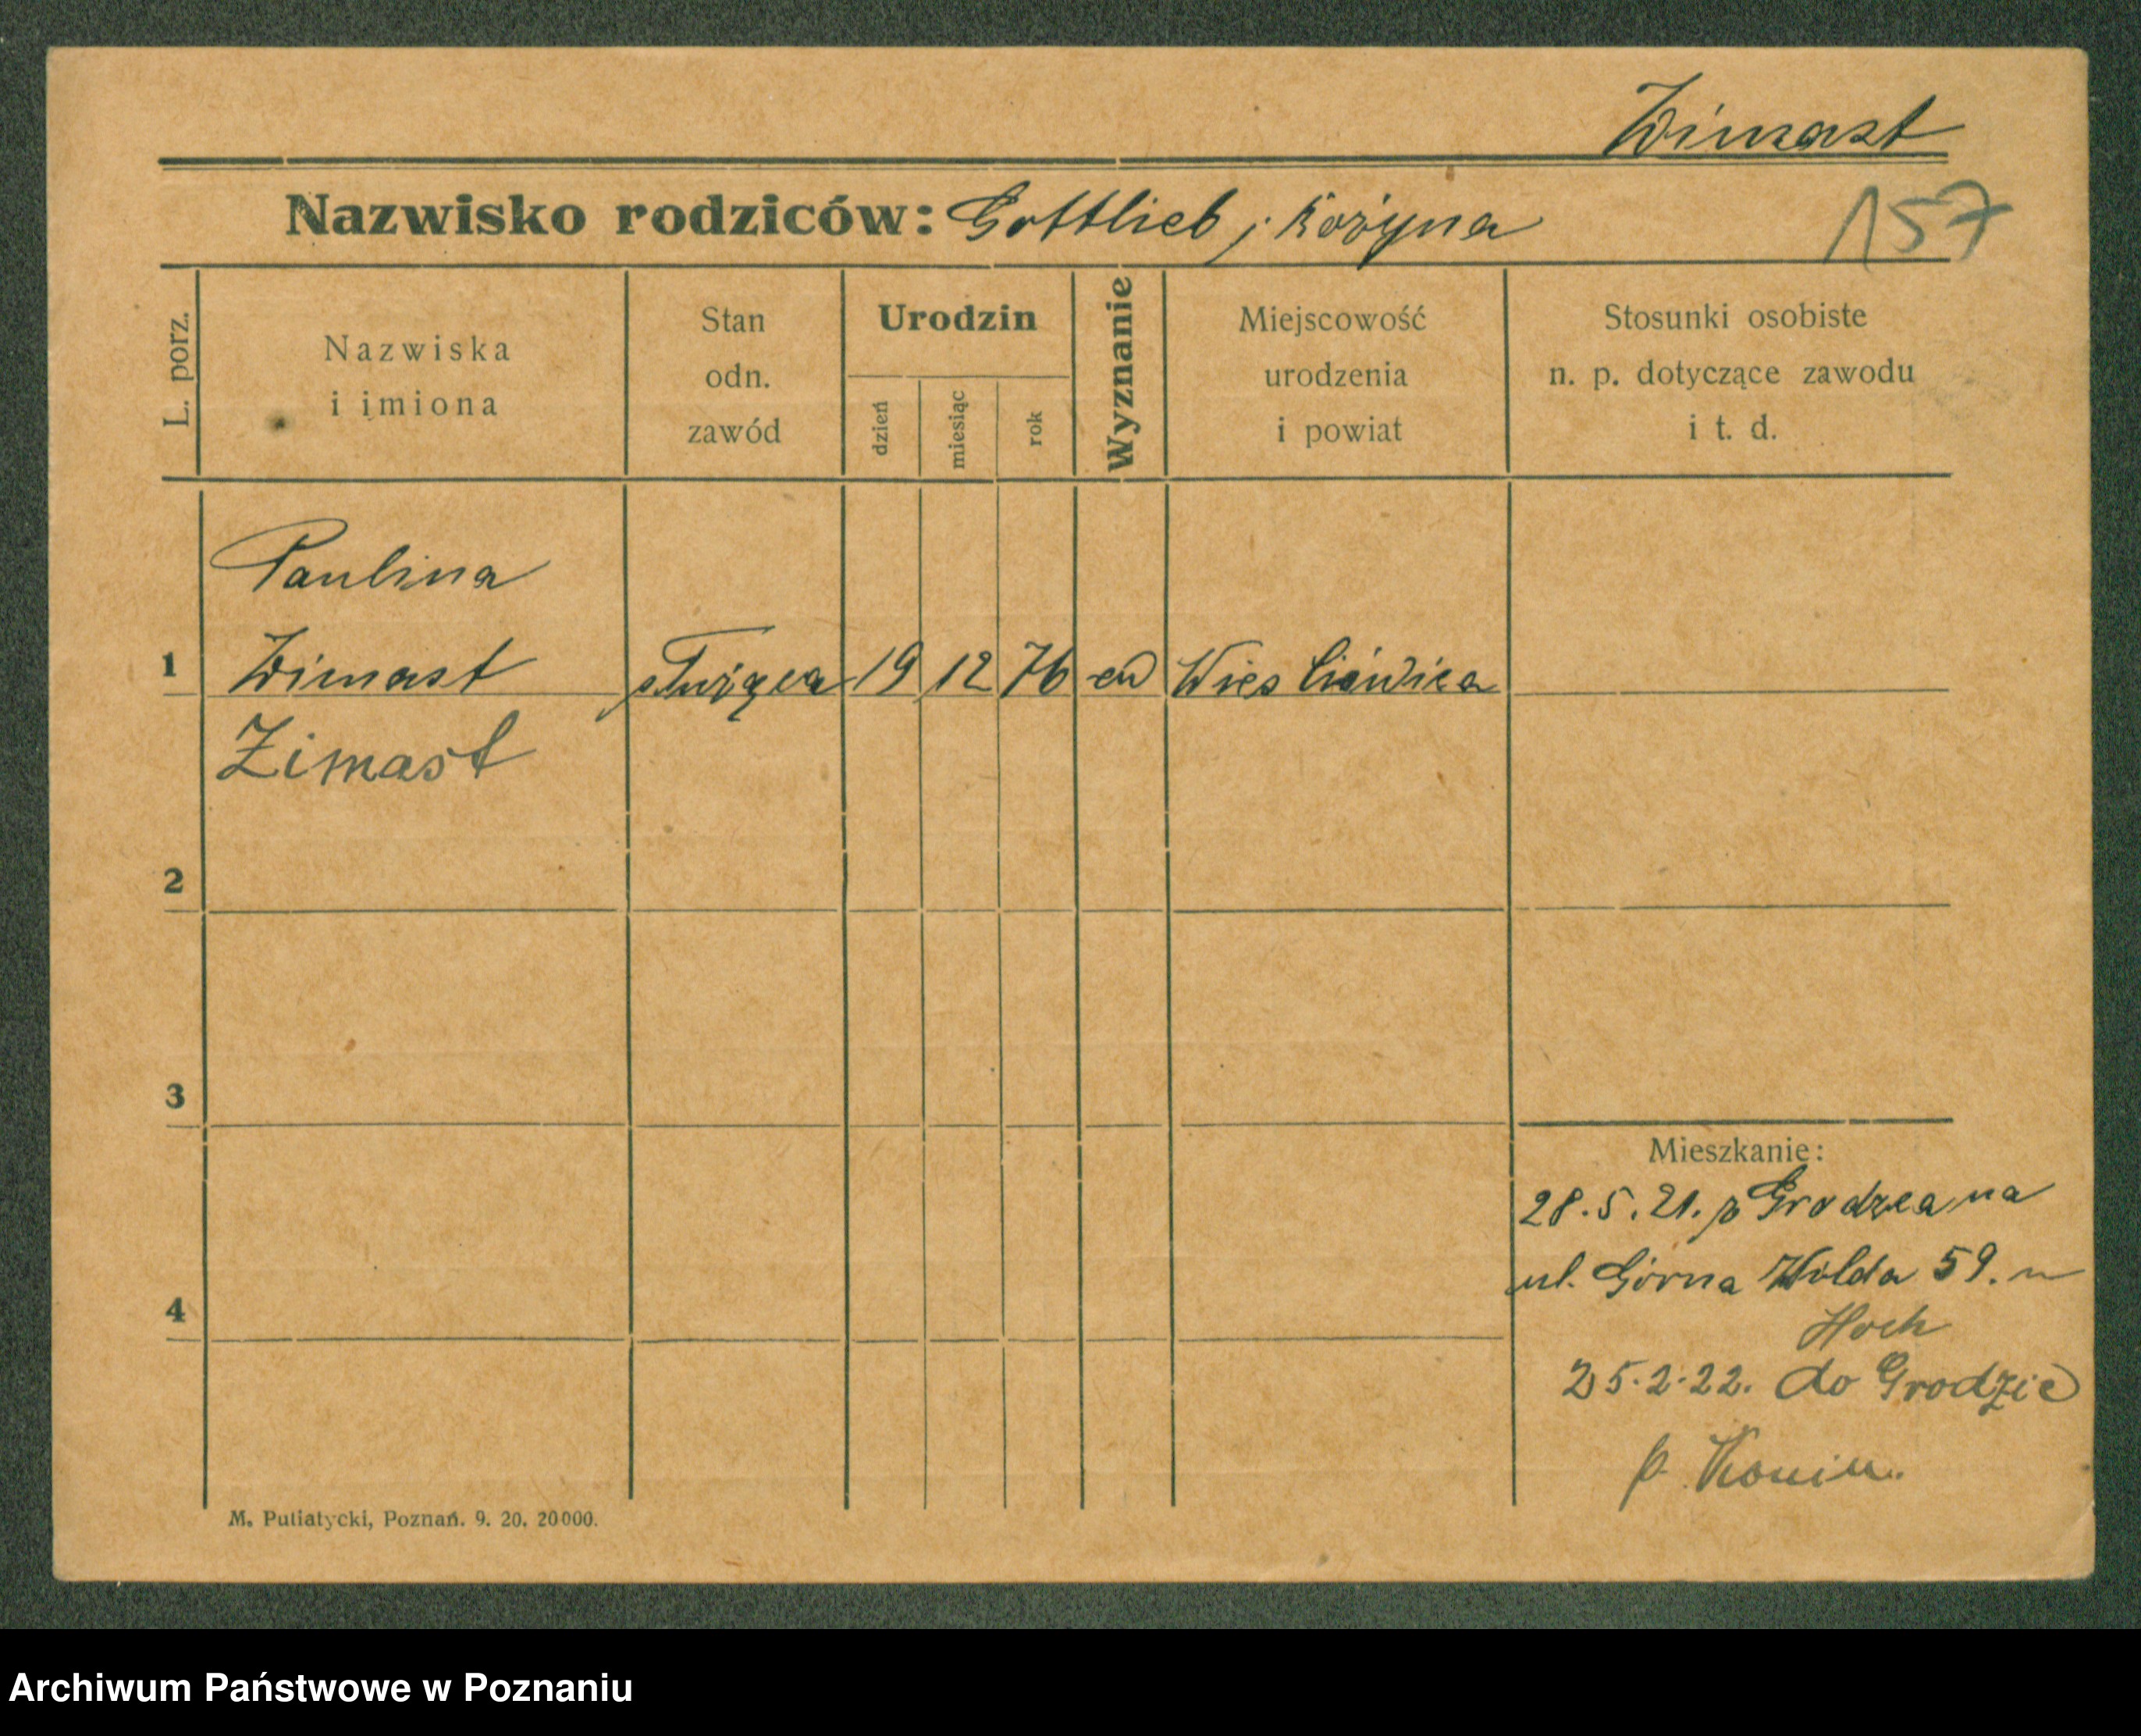 Zimast
Nazwisko rodziców: Gottlieb i Rozyna
157
L. porz.
Nazwiska
i imiona
Stan
odn.
zawód
Urodzin
dzień
miesiąc
rok
Wyznanie
Miejscowość
urodzenia
i powiat
Stosunki osobiste
n. p. dotyczące zawodu
i t. d.
Paulina
1 Zimast służąca 19 12 76 ew Wieś
Zimast
2
3
4
Mieszkanie:
28.5.21. z Grodzca na
ul. Górna Wilda 59. u
Hoch
25.2.22. do Grodzic
p. Konin.
M. Putiatycki, Poznań. 9. 20. 20000.
Archiwum Państwowe w Poznaniu